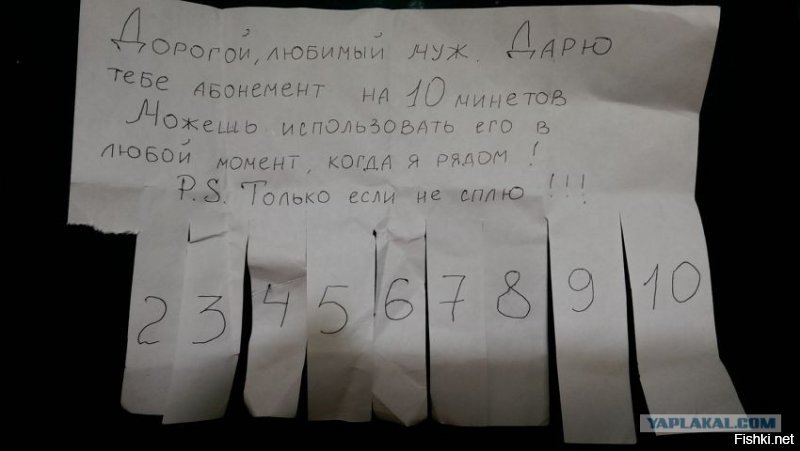 Дорогой, любимый муж. Дарю
тебе абонемент на 10 минетов
Можешь использовать его в
любой момент, когда я рядом!
P.S. Только если не сплю!!!
2 3 4 5 6 7 8 9 10
YAPLAKAL.COM
Fishki.net